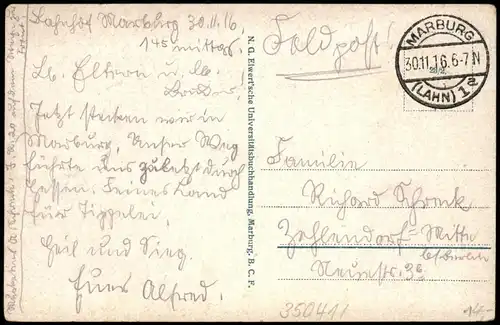 Bahnhof Marburg 30.11.16
1 45 mittag.
Lb. Eltern u. lb.
Bruder!
Jetzt stecken wir in
Marburg, Unser Weg
führte uns zuletzt durch
Hessen. Feines Land
für Tippelei.
Heil und Sieg.
Euer Alfred.
N. G. Elwert'sche Universitätsbuchhandlung, Marburg. B. C. F.
Feldpost!
MARBURG
30.11.16.6-7N
(LAHN) 1a
Familie
Richard Schronk
Zehlendorf-Mitte
b/Berlin
Neuestr. 3c
350411